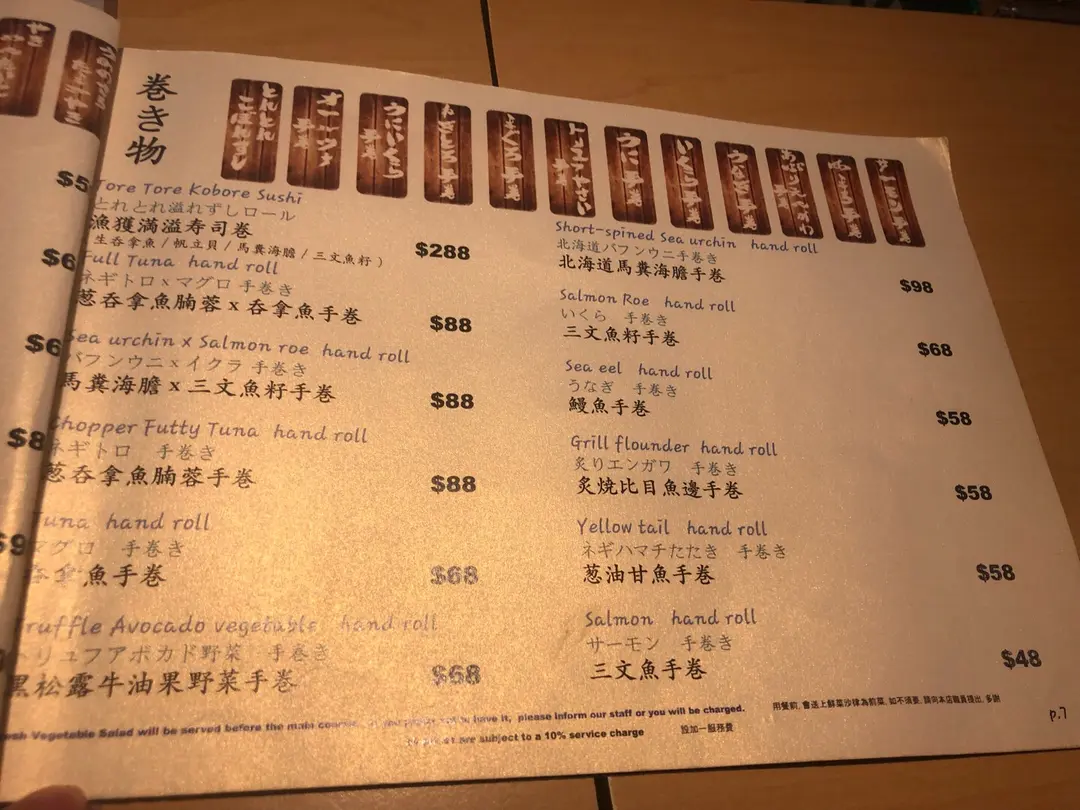 巻き物
Tore Tore Kobore Sushi
とれとれ溢れずしロール
漁獲満溢寿司巻
生吞拿魚 / 帆立貝 / 馬糞海膽 / 三文魚籽 )
$288
Full Tuna hand roll
ネギトロ x マグロ 手巻き
葱吞拿魚腩蓉 x 吞拿魚手巻
$88
Sea urchin x Salmon roe hand roll
バフンウニ x イクラ 手巻き
馬糞海膽 x 三文魚籽手巻
$88
Chopper Futty Tuna hand roll
ネギトロ 手巻き
葱吞拿魚腩蓉手巻
$88
Tuna hand roll
マグロ 手巻き
吞拿魚手巻
$68
Truffle Avocado vegetable hand roll
トリュフアボカド野菜 手巻き
黒松露牛油果野菜手巻
$68
Short-spined Sea urchin hand roll
北海道バフンウニ手巻き
北海道馬糞海膽手巻
$98
Salmon Roe hand roll
いくら 手巻き
三文魚籽手巻
$68
Sea eel hand roll
うなぎ 手巻き
鰻魚手巻
$58
Grill flounder hand roll
炙りエンガワ 手巻き
炙焼比目魚邊手巻
$58
Yellow tail hand roll
ネギハマチたたき 手巻き
葱油甘魚手巻
$58
Salmon hand roll
サーモン 手巻き
三文魚手巻
$48
Vegetable Salad will be served before the main have it, please inform our staff or you will be charged.
are subject to a 10% service charge
設加一服務費
用餐前, 會送上鮮菜沙律為前菜, 如不須要, 請向本店職員提出, 多謝
p.7